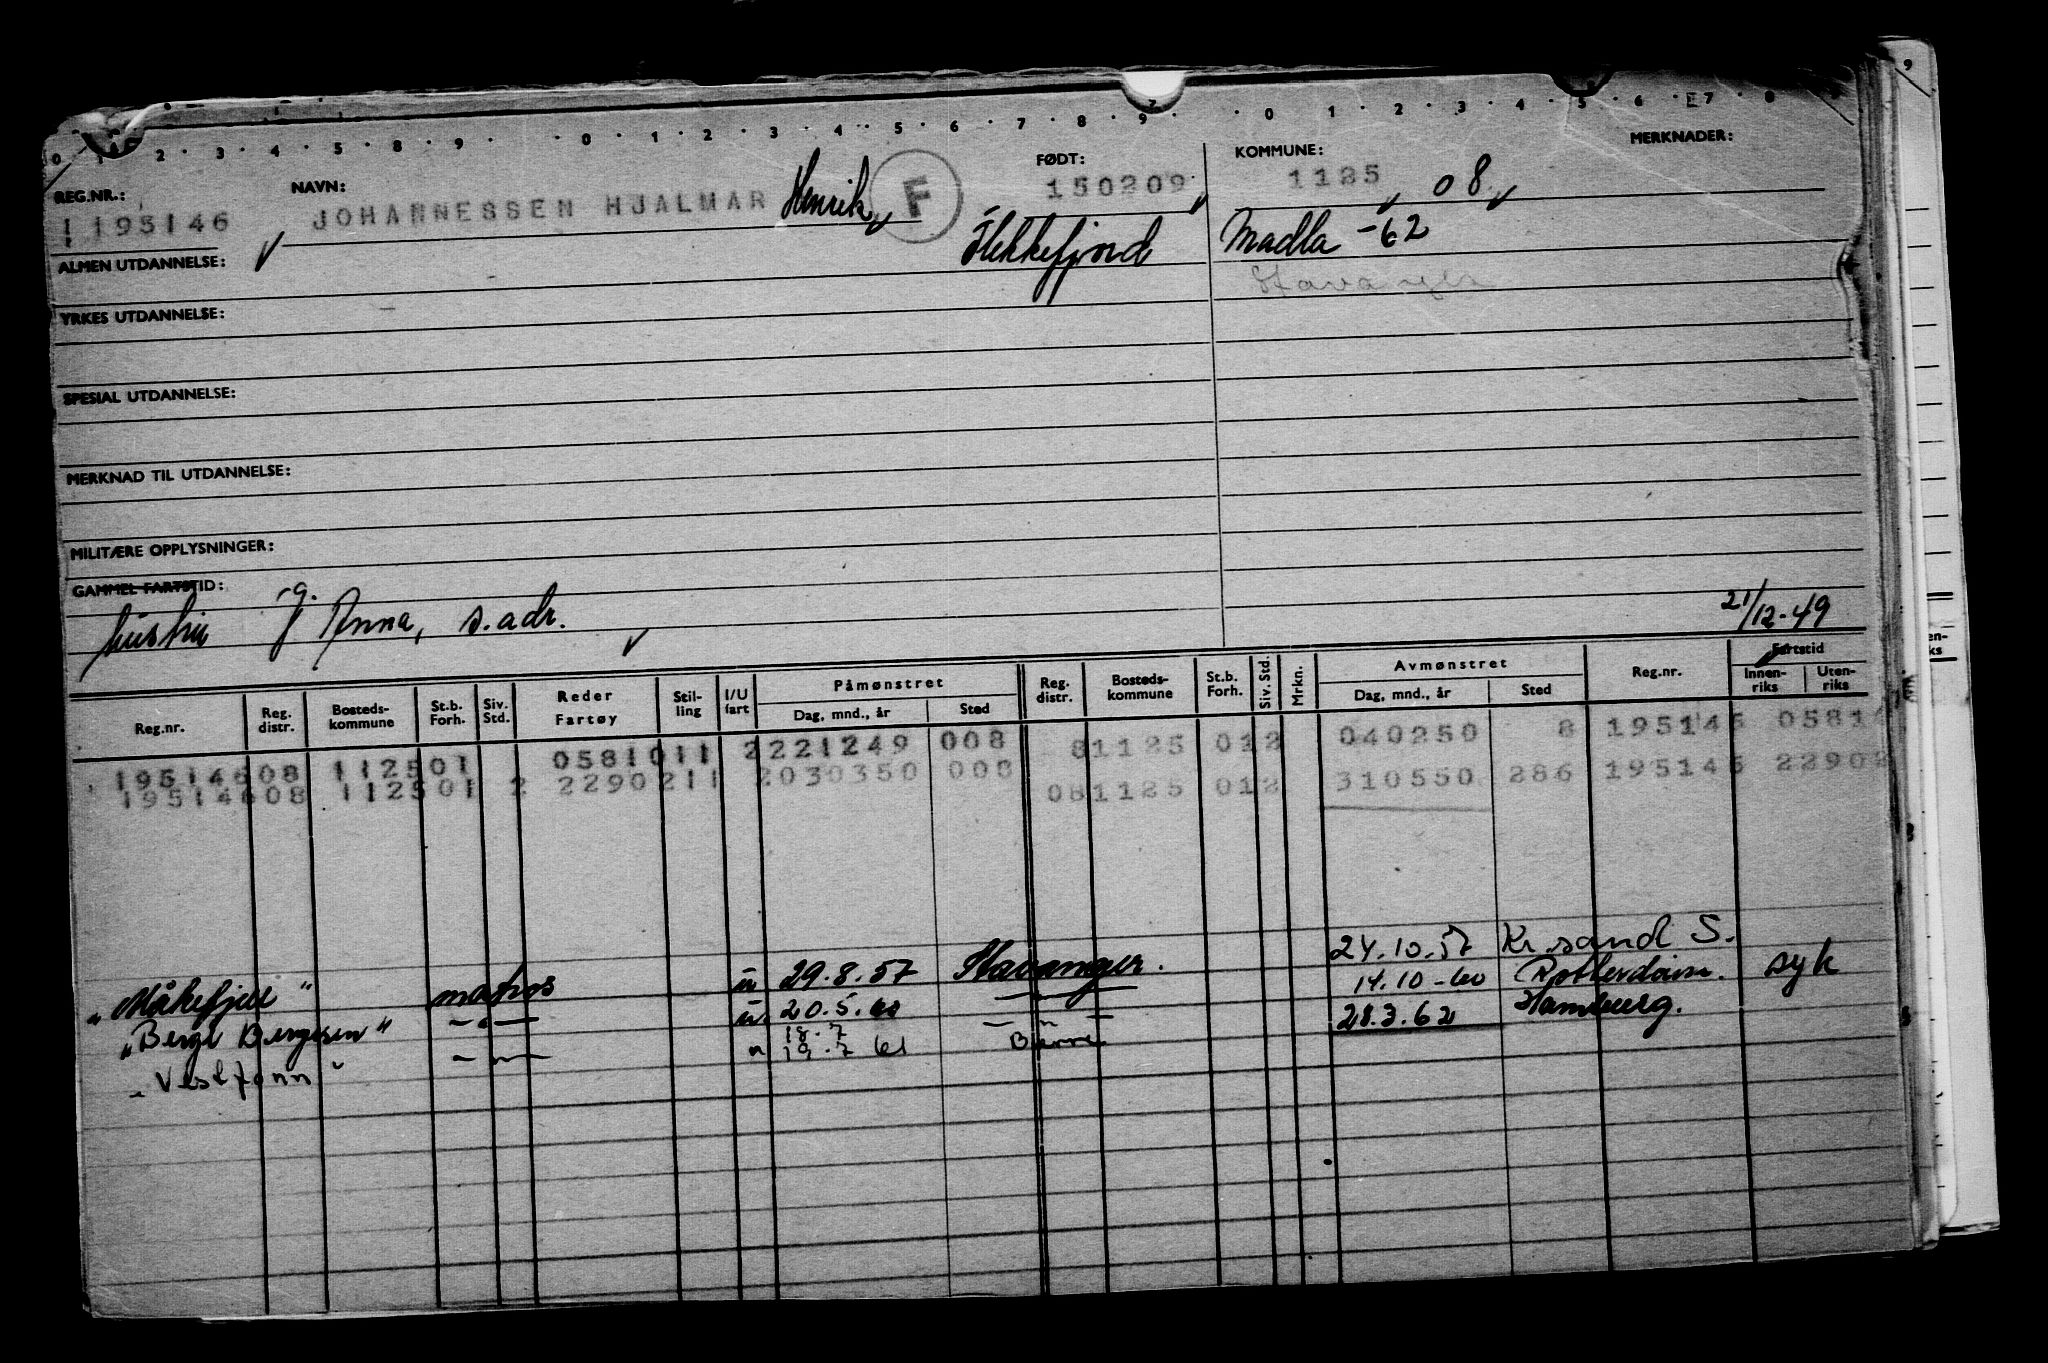 0 · 1 · 2 · 3 · 4 · 5 · 8 · 9 · · 0 · 1 · 2 · 3 · 4 · 5 · 6 · 7 · 8 · 9 · · 0 · 1 · 2 · 3 · 4 · 5 · 6 · 7 · 8
REG.NR.: NAVN: FØDT: KOMMUNE: MERKNADER:
195146 JOHANNESSEN HJALMAR Henrik F 150209 1125 08
ALMEN UTDANNELSE: Flekkefjord Madla -62
Stavanger
YRKES UTDANNELSE:
SPESIAL UTDANNELSE:
MERKNAD TIL UTDANNELSE:
MILITÆRE OPPLYSNINGER:
GAMMEL FARTSTID:
hustru g. Anna, s. adr. 21/12-49
Reg.nr. Reg. distr. Bosteds-kommune St.b. Forh. Siv. Std. Reder Fartøy Stil-ling I/U fart Påmønstret Dag, mnd., år Sted Reg. distr. Bosteds-kommune St.b. Forh. Siv. Std. Mrkn. Avmønstret Dag, mnd., år Sted Reg.nr. Fartstid Innen-riks Uten-riks
195146 08 1125 01 0581011 2 221249 008 81125 012 040250 8 195146 0581
195146 08 1125 01 2 2290211 2 030350 008 081125 012 310550 286 195146 2290
"Måkefjell" matros u 29.8.57 Stavanger. 24.10.57 Kr.sand S.
"Berge Bergesen" — " — u. 20.5.60 — " — 14.10-60 Rotterdam. syk
18.7
"Vestfonn" — " — u 19.7 61 28.3.62 Hamburg.